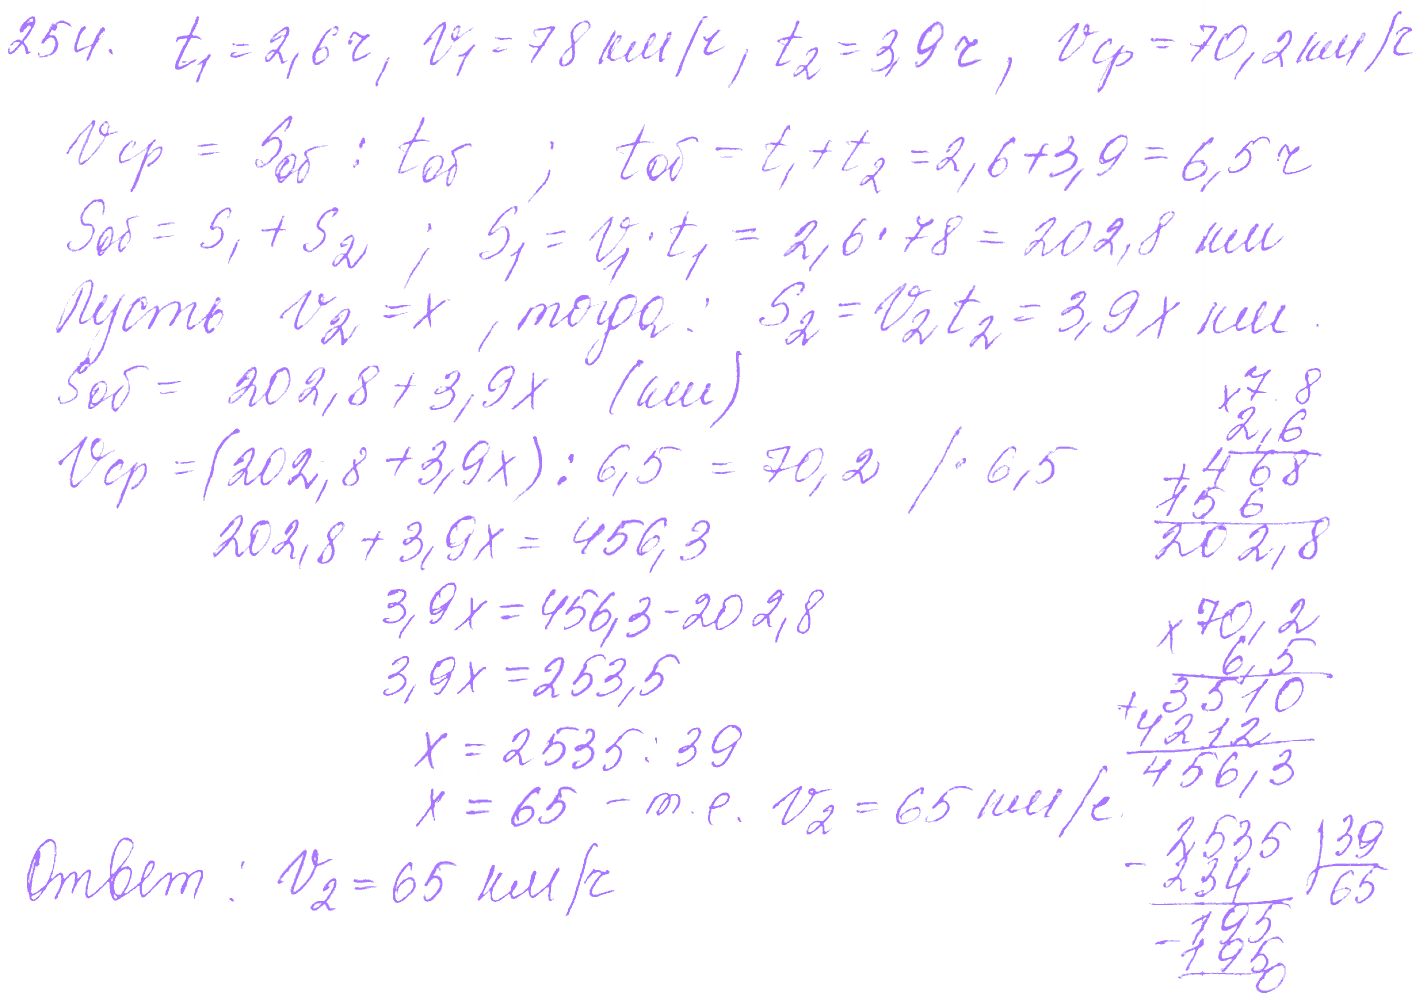 254. t₁ = 2,6 ч, v₁ = 78 км/ч, t₂ = 3,9 ч, vср = 70,2 км/ч
vср = Sоб : tоб ; tоб = t₁ + t₂ = 2,6 + 3,9 = 6,5 ч
Sоб = S₁ + S₂ ; S₁ = v₁ · t₁ = 2,6 · 78 = 202,8 км
Пусть v₂ = x, тогда: S₂ = v₂t₂ = 3,9x км.
Sоб = 202,8 + 3,9x (км)
vср = (202,8 + 3,9x) : 6,5 = 70,2 /· 6,5
202,8 + 3,9x = 456,3
3,9x = 456,3 - 202,8
3,9x = 253,5
x = 2535 : 39
x = 65 – т.е. v₂ = 65 км/ч.
Ответ: v₂ = 65 км/ч
x 7 8
2,6
+ 4 68
156
202,8
x 70,2
6,5
+ 3510
4212
456,3
- 2535 | 39
234 65
- 195
195
0